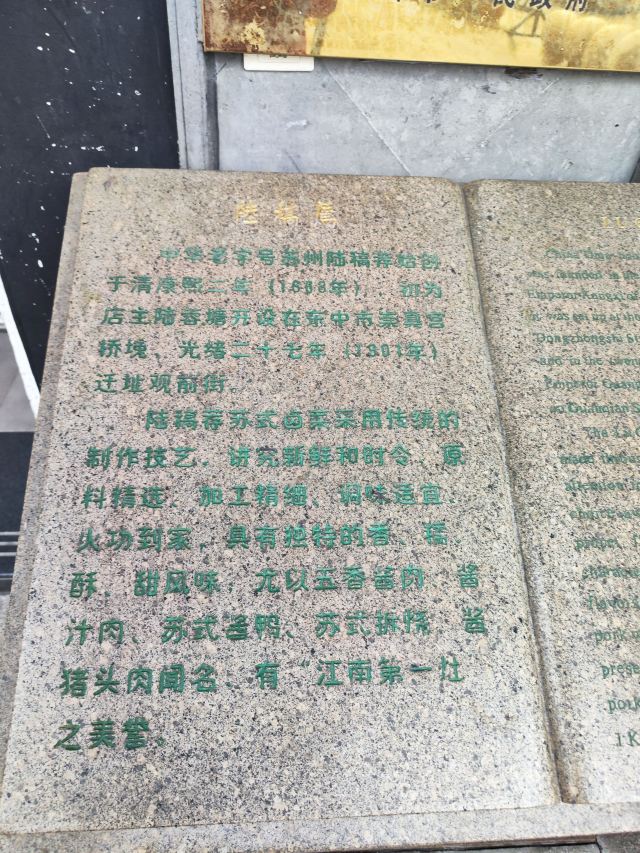 民政府
陆稿荐
中华老字号苏州陆稿荐始创
于清康熙二年(1663年),初为
店主陆蓉塘开设在东中市崇真宫
桥堍,光绪二十七年(1901年)
迁址观前街。
陆稿荐苏式卤菜采用传统的
制作技艺,讲究新鲜和时令、原
料精选、加工精细、调味适宜、
火功到家,具有独特的香、糯、
酥、甜风味,尤以五香酱肉、酱
汁肉、苏式酱鸭、苏式折烧、酱
猪头肉闻名,有“江南第一灶
之美誉。
China time
was founded in
Emperor Kangxi
It was set up at the
Dongzhongshi
and in the
Emperor Guang
to Guanqian
The Lu
made
attention
flavor
pork
prese
pork
1 K